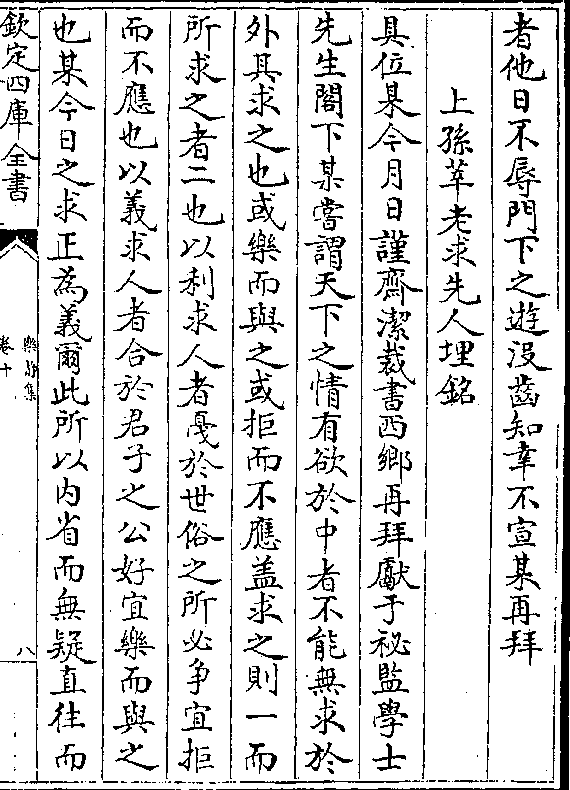 者他日不辱門下之遊没齒知幸不宣某再拜
上孫莘老求先人埋銘
具位某今月日謹齋潔裁書西鄉再拜獻于祕監學士
先生閣下某嘗謂天下之情有欲於中者不能無求於
外其求之也或樂而與之或拒而不應盖求之則一而
所求之者二也以利求人者戞於世俗之所必争宜拒
而不應也以義求人者合於君子之公好宜樂而與之
也某今日之求正為義爾此所以内省而無疑直往而
欽定四庫全書
集
卷十
八